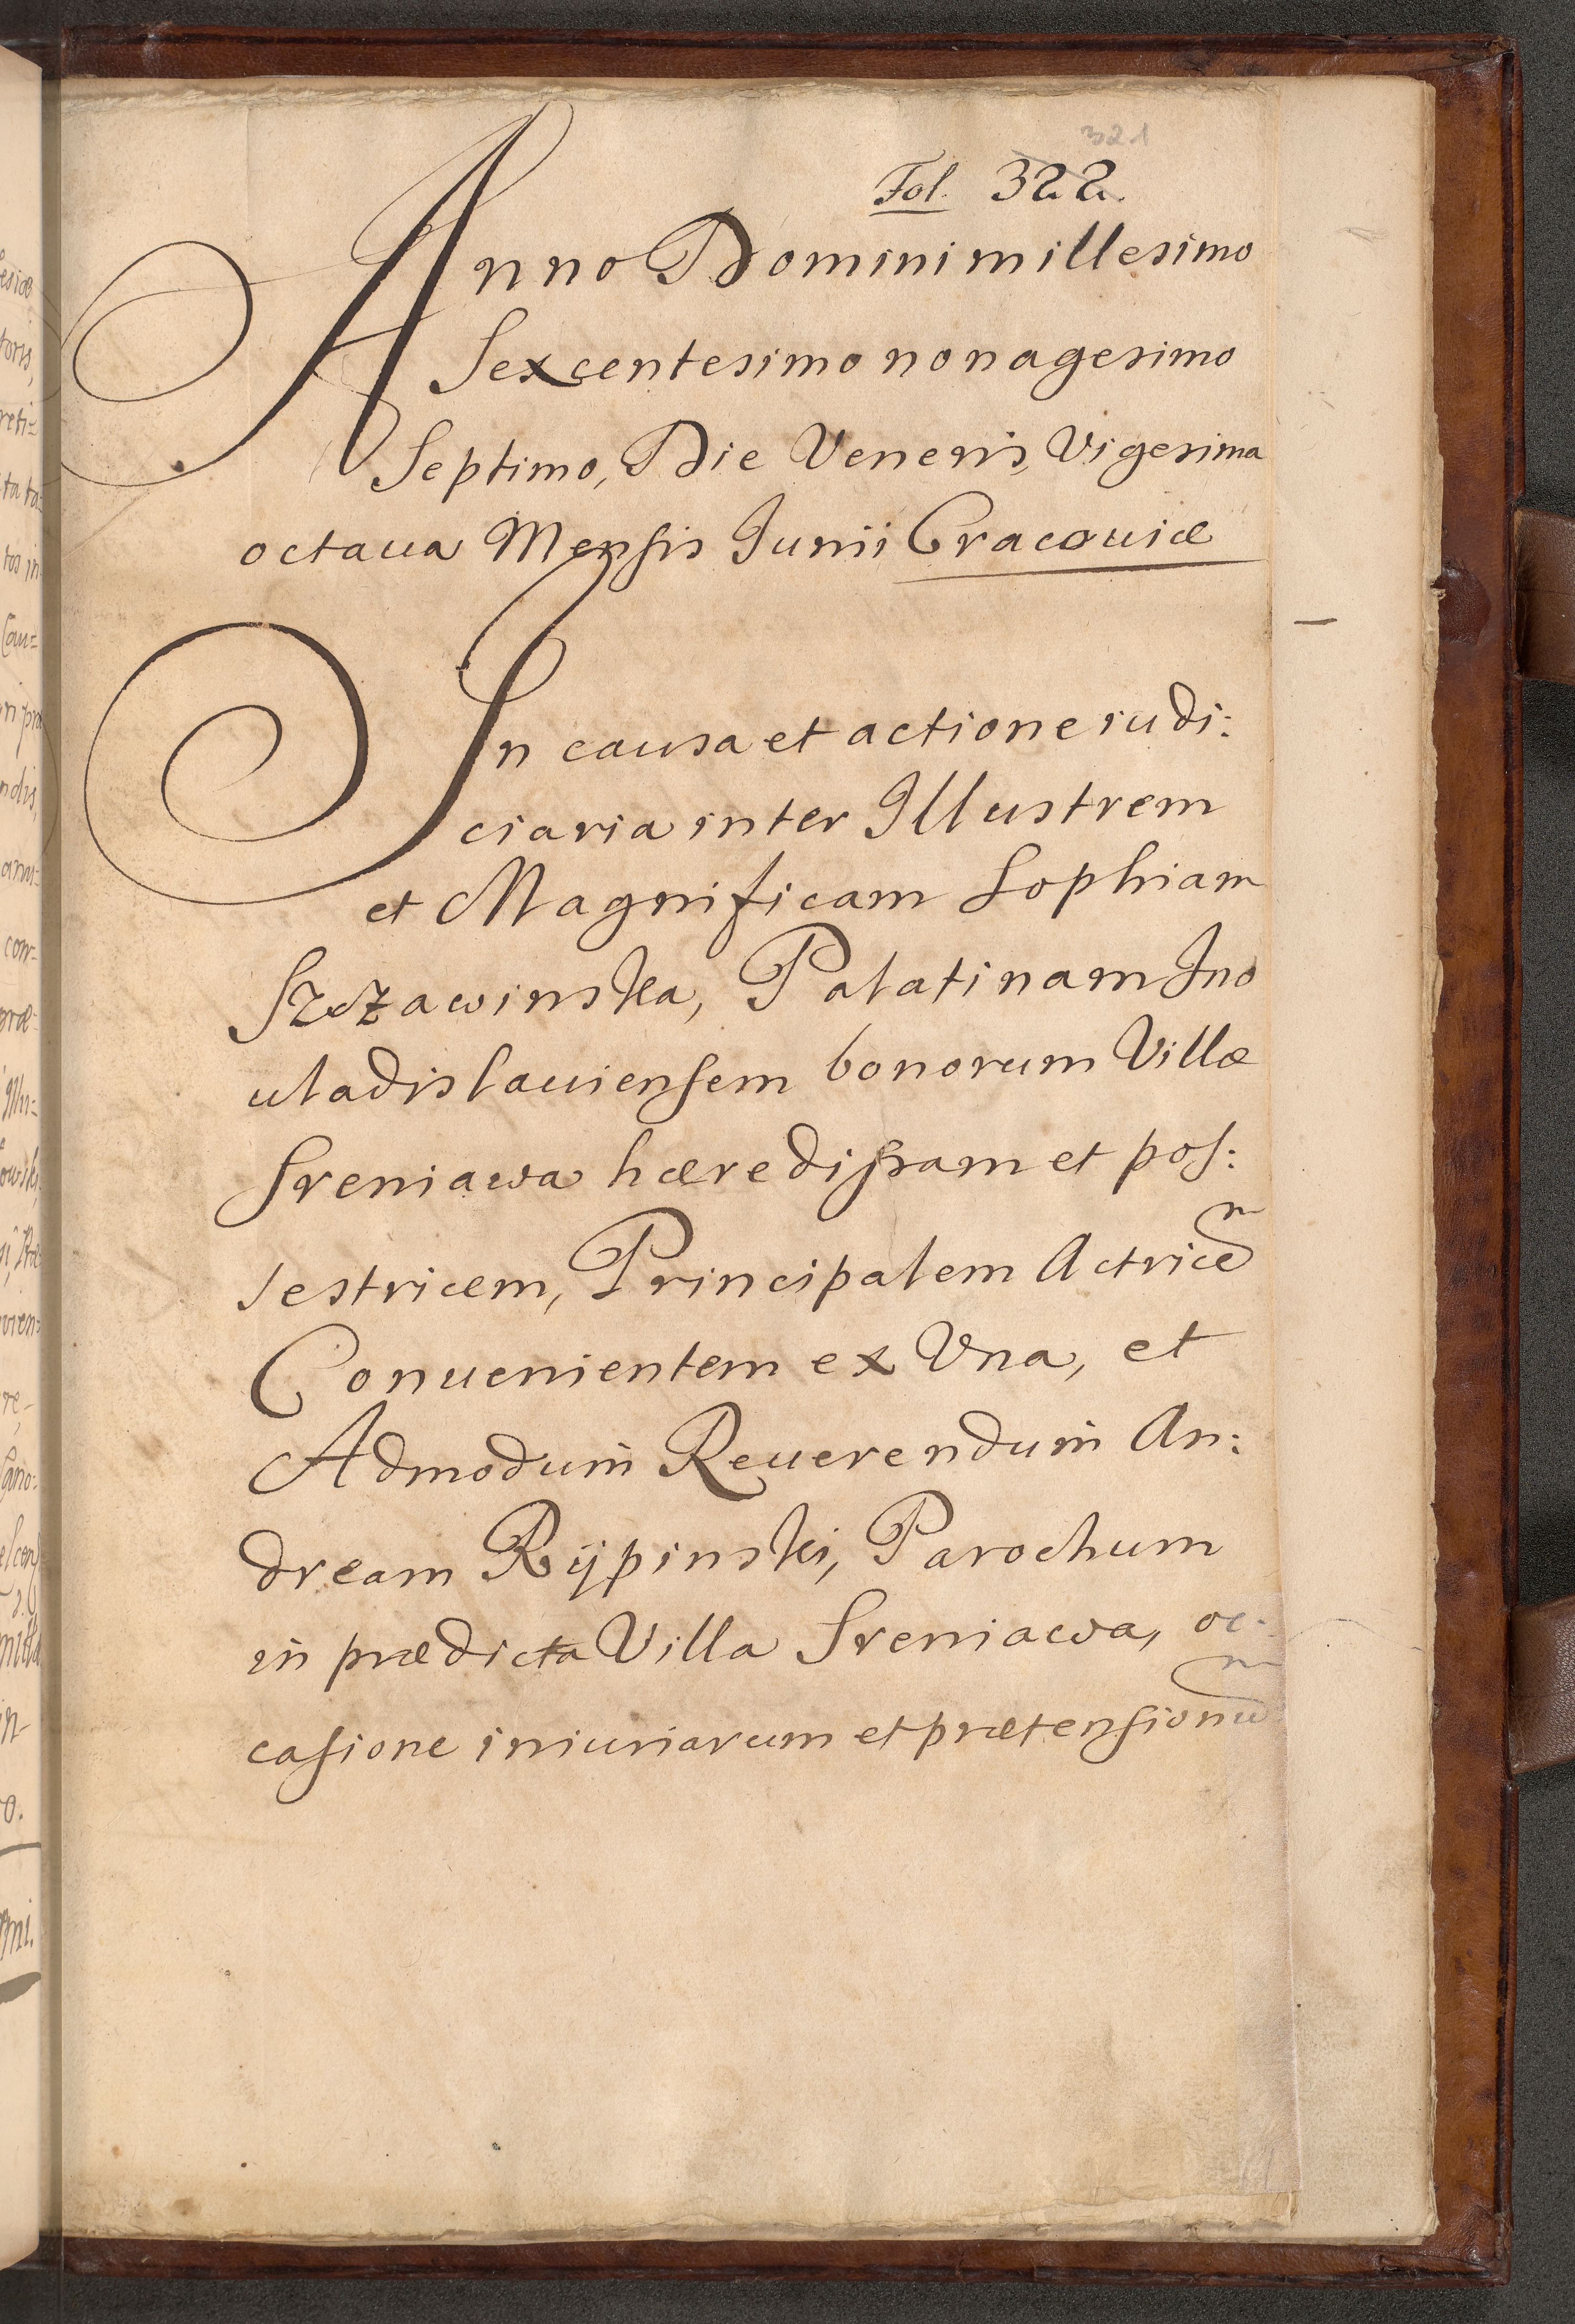 321
Fol. 322.
Anno Domini millesimo
Sexcentesimo nonagesimo
Septimo, Die Veneris, Vigesima
octaua Mensis Junii Cracouiæ
In causa et actione iudi:
ciaria inter Illustrem
et Magnificam Sophiam
Szczawinska, Palatinam Ino
uladislauiensem bonorum Villæ
Sreniawa hæredissam et pos:
sestricem, Principalem Actricem
Conuenientem ex Vna, et
Admodum Reuerendum An:
dream Rÿpinski, Parochum
in prædicta Villa Sreniawa, oc:
casione iniuriarum et prætensionum